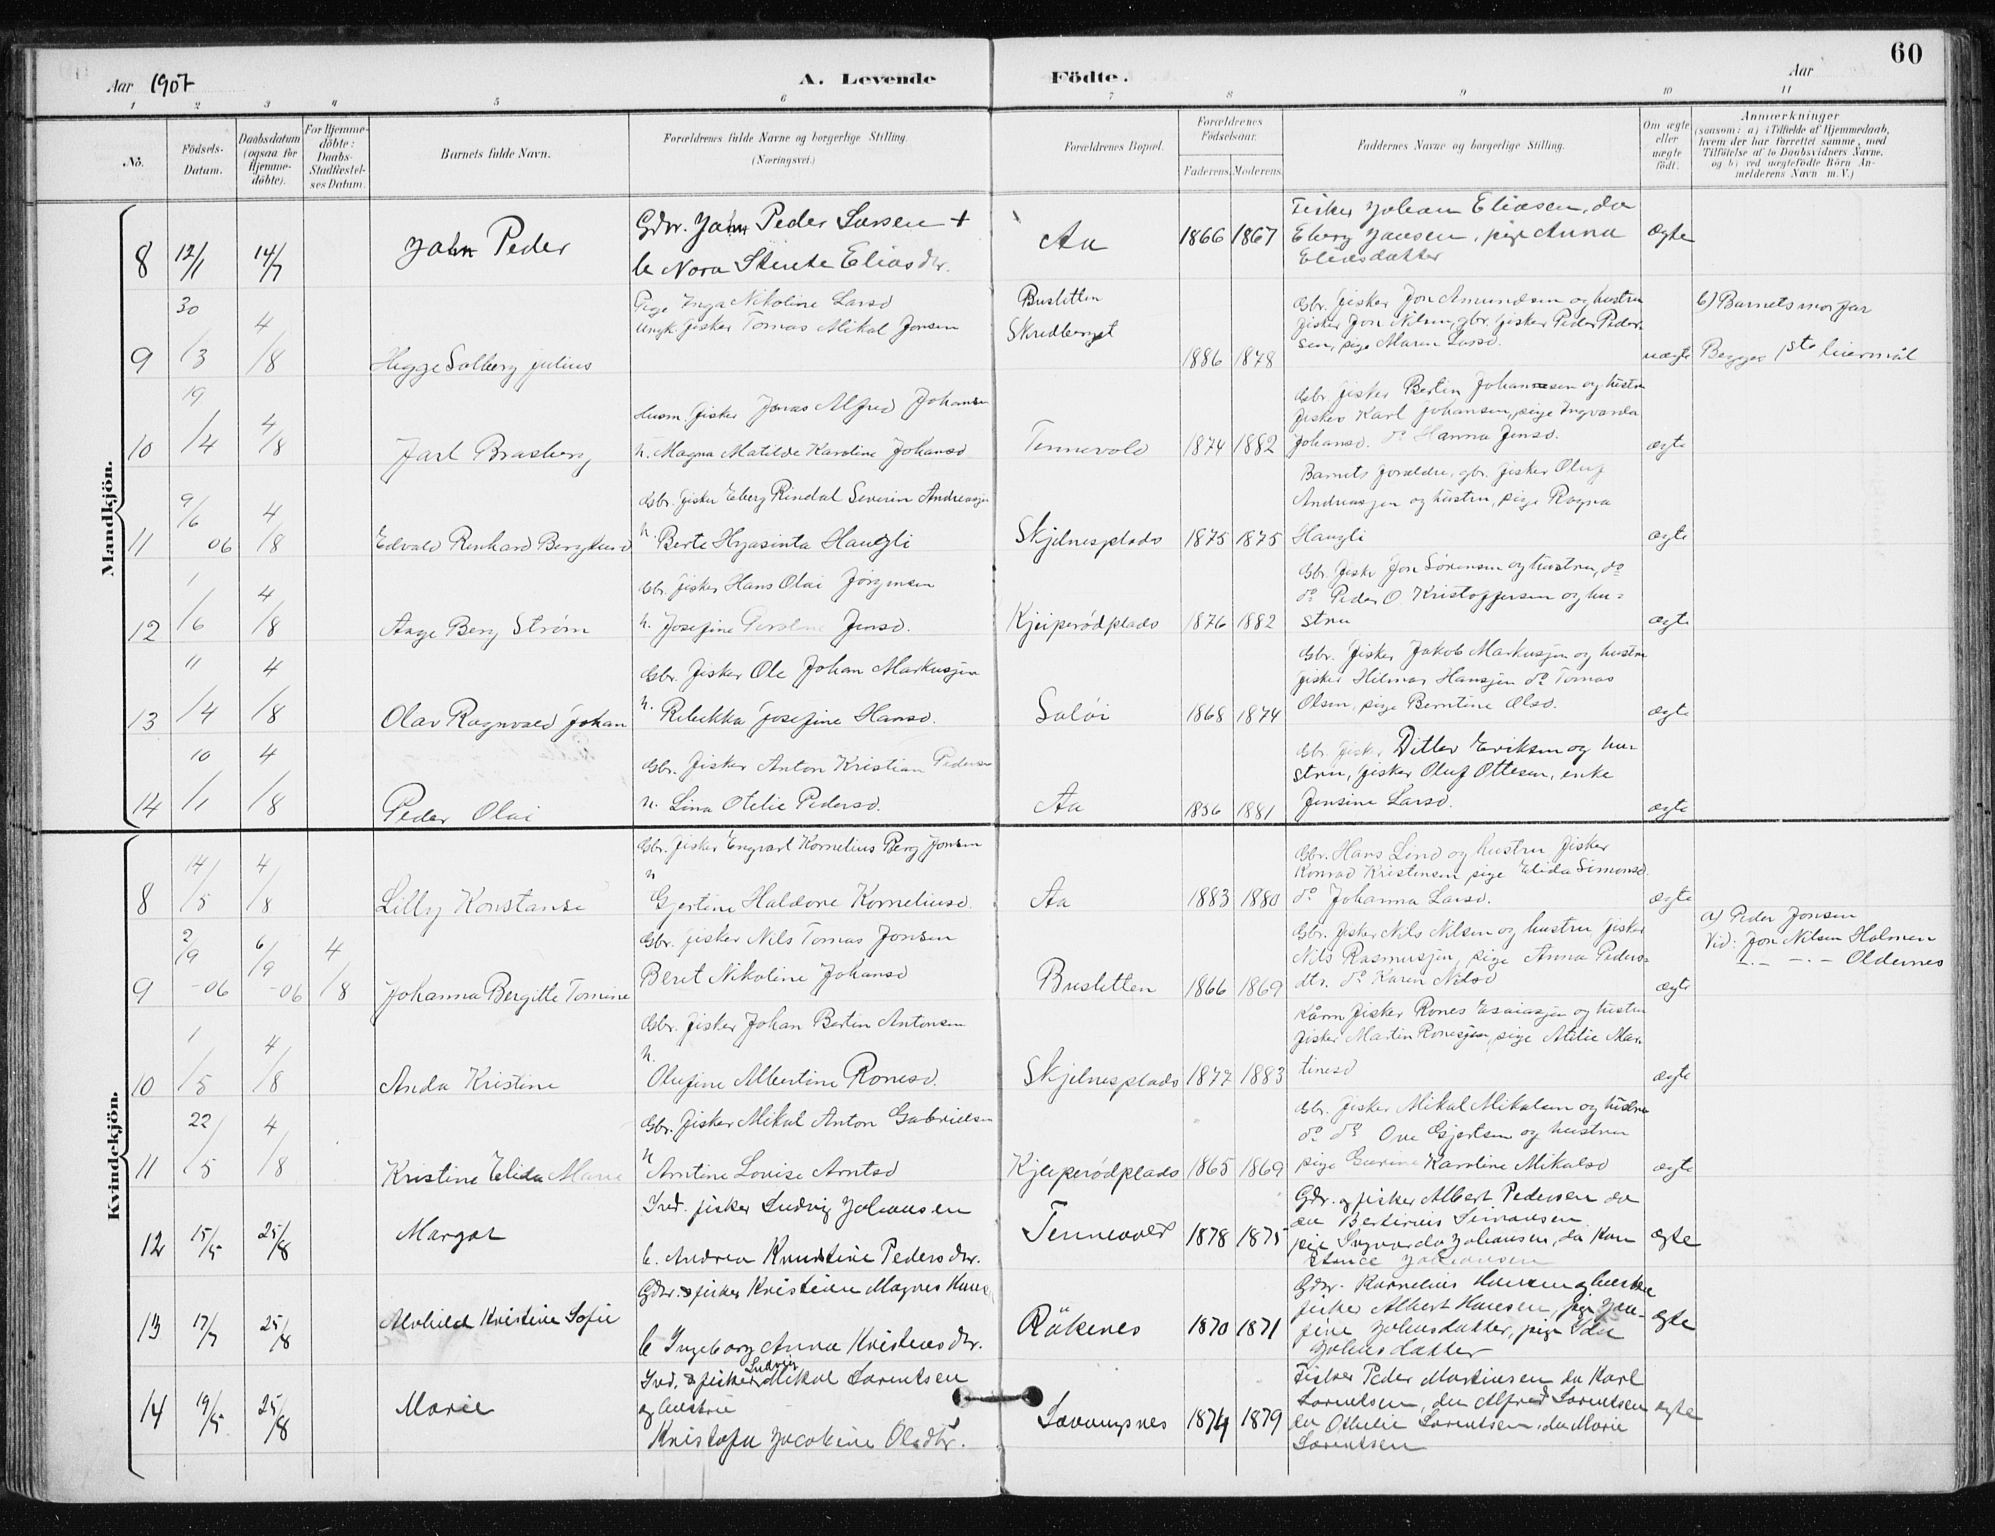 60
Aar 1907
A. Levende
Födte.
Aar
1 2 3 4 5 6 7 8 9 10 11
No.
Födsels-
Datum.
Daabsdatum
(ogsaa for
Hjemme-
döbte).
For Hjemme-
döbte:
Daabs-
Stadfæstel-
ses Datum.
Barnets fulde Navn.
Forældrenes fulde Navne og borgerlige Stilling.
(Næringsvei.)
Forældrenes Bopæl.
Forældrenes
Födselsaar.
Faderens. Moderens.
Faddernes Navne og borgerlige Stilling.
Om ægte
eller
uægte
födt.
Anmærkninger
(saasom: a) i Tilfælde af Hjemmedaab,
hvem der har forrettet samme, med
Tilföielse af to Daabsvidners Navne,
og b) ved uægtefödte Börn An-
melderens Navn m. V.)
Mandkjön.
8 12/1 14/7 John Peder
Gbr. John Peder Larsen +
h Nora Stinte Eliasdtr.
Aa 1866 1867
Fisker Johan Eliasen, do
Eberg Jansen, pige Anna
Eliasdatter
ægte
9 30/3 4/8 Higge Solberg Julius
Pige Inga Nikoline Larsd
Ungk. fisker Tomas Mikal Jonsen
Busletten
Skredberget
1886 1878
Gbr. fisker Jon Amundsen og hustru
fisker Jon Nilsen, gbr. fisker Peder Peder-
sen, pige Maren Larsd.
uægte
b) Barnets morfar
Begges 1ste leiermål
10 19/4 4/8 Jarl Brasberg
Husm. fisker Jonas Alfred Johansen
h. Magna Matilde Karoline Johansd
Tennevold 1874 1882
Gbr. fisker Bertin Johannesen og hustru
fisker Karl Johansen, pige Ingvarda
Johansd. do Hanna Jensd.
ægte
11 9/6 06 4/8 Edvald Reinhard Berglund
Gbr. fisker Eberg Rindal Severin Andreasjen
h. Berte Hyasinta Haugli
Skjelnesplads 1875 1875
Barnets forældre, gbr. fisker Oluf
Andreasjen og hustru, pige Ragna
Haugli
ægte
12 1/6 4/8 Aage Berg Strøm
Gbr. fisker Hans Olai Jörgensen
h. Josefine Jensd.
Kjeiperödplads 1876 1882
Gbr. fisker Jon Sörensen og hustru, do
do Peder O. Kristoffersen og hu-
stru
ægte
13 11/4 4/8 Olav Ragnvald Johan
Gbr. fisker Ole Johan Markusjen
h. Rebekka Josefine Hansd.
Solöi 1868 1874
Gbr. fisker Jakob Markusjen og hustru
fisker Hilmar Hansjen do Tomas
Olsen, pige Berntine Olsd.
ægte
14 10/1 4/8 Peder Olai
Gbr. fisker Anton Kristian Pedersen
h. Lina Otelie Pedersd.
Aa 1856 1881
Gbr. fisker Ditlev Eriksen og hu-
stru, fisker Oluf Ottesen, enke
Jensine Larsd.
ægte
Kvindekjön.
8 14/5 4/8 Lilly Konstanse
Gbr. fisker Engvart Kornelius Berg Jonsen
h
Gjertine Haldore Korneliusd
Aa 1883 1880
Gbr. Hans Lind og hustru fisker
Konrad Kristensen pige Elida Simonsd.
do Johanna Larsd.
ægte
9 2/9 -06 6/9 -06 4/8 Johanna Bergitte Tomine
Gbr. fisker Nils Tomas Jonsen
Beret Nikoline Johansd
Buslетten 1866 1869
Gbr. fisker Nils Nilsen og hustru fisker
Nils Rasmusjen, pige Anna Peders-
dtr. do Karen Nilsd
ægte
a) Peder Jonsen
Vid: Jon Nilsen Holmen
-.- -.- Oldernes
10 1/5 4/8 Anda Kristine
Gbr. fisker Johan Bertin Antonsen
h.
Olufine Albertine Ronesd.
Skjelnesplads 1877 1883
Kårm fisker Rones Esaiasjen og hustru
fisker Martin Ronesjen, pige Atilie Mar-
tinesd
ægte
11 22/5 4/8 Kristine Elida Marie
Gbr. fisker Mikal Anton Gabrielsen
h
Arntine Lovise Arntsd
Kjeiperödplads 1865 1869
Gbr. fisker Mikal Mikalsen og hustru
do do Ove Gjertsen og hustru
pige Karoline Mikalsd
ægte
12 15/5 25/8 Margot
Ind. fisker Ludvig Johansen
h. Andrea Kristine Pedersdtr.
Tennevold 1878 1875
Gbr. og fisker Albert Pedersen do
Simonsen
pie Ingvarda Johansen, do Kon
stance Johansen
ægte
13 17/7 25/8 Alvhild Kristine Sofie
Gbr. & fisker Kristian Magnes Hans
h Ingeborg Anna Kristensdtr.
Råkenes 1870 1871
Gbr. Kornelius Hansen og hustru
fisker Albert Hansen, pige Jon-
sine Johnsdatter, pige Ida
Johnsdatter
ægte
14 19/5 25/8 Marie
Ind. & fisker Ludvig Mikal Lorentsen
og hustru
Kristofa Jacobine Olsdtr.
Lavangsnes 1874 1879
Fisker Peder Martinsen do Karl
Lorentsen, do Alfred Lorentsen
do Othelie Lorentsen, do Marie
Lorentsen
ægte